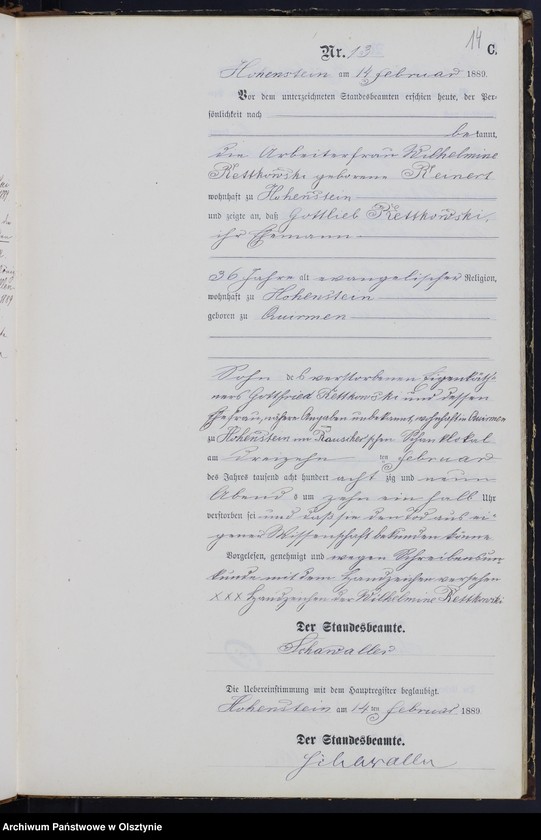 14
C.
Nr. 13
Hohenstein am 14 Februar 1889.
Vor dem unterzeichneten Standesbeamten erschien heute, der Per-
sönlichkeit nach
bekannt,
die Arbeiterfrau Wilhelmine
Rettkowski geborene Reinert
wohnhaft zu Hohenstein
und zeigte an, daß Gottlieb Rettkowski,
ihr Ehemann
36 Jahre alt evangelischer Religion,
wohnhaft zu Hohenstein
geboren zu Quirmen
Sohn des verstorbenen Eigenkäth-
ners Gottfried Rettkowski und dessen
Ehefrau, nähere Angaben unbekannt, wohnhaft in Quirmen
zu Hohenstein im Rauscher'schen Schanklokal
am dreizehn ten Februar
des Jahres tausend acht hundert achtzig und neun
Abends um zehn ein halb Uhr
verstorben sei und daß sie den Tod aus ei-
gener Wissenschaft bekunden könne
Vorgelesen, genehmigt und wegen Schreibensun-
kunde mit dem Handzeichen versehen
XXX Handzeichen der Wilhelmine Rettkowski
Der Standesbeamte.
Schawaller
Die Uebereinstimmung mit dem Hauptregister beglaubigt.
Hohenstein am 14 ten Februar 1889.
Der Standesbeamte.
Schawaller
Archiwum Państwowe w Olsztynie